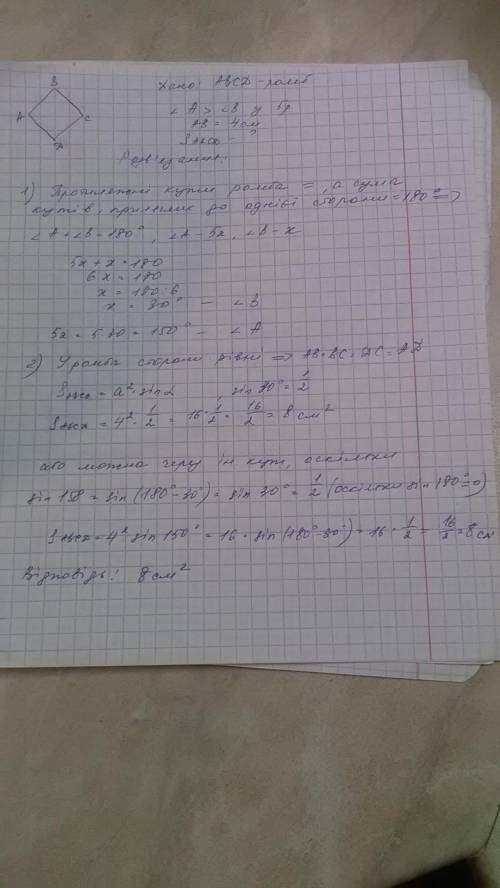 B
Дано: ABCD - ромб
A
C
∠A > ∠B у 5р
AB = 4см
S ABCD - ?
Розв'язання:
1) Протилежні кути ромба =, а сума
кутів, прилеглих до однієї сторони = 180° =>
∠A + ∠B = 180°, ∠A - 5x, ∠B - x
5x + x = 180
6x = 180
x = 180:6
x = 30° - ∠B
5x = 5·30 = 150° - ∠A
2) У ромба сторони рівні => AB = BC = DC = AD
S ABCD = a²·sin α, sin 30° = 1/2
S ABCD = 4²·1/2 = 16·1/2 = 16/2 = 8 см²
або можна через ін кут, оскільки
sin 150 = sin(180°-30°) = sin 30° = 1/2 (оскільки sin 180°=0)
S ABCD = 4² sin 150° = 16·sin(180°-30°) = 16·1/2 = 16/2 = 8 см
Відповідь: 8 см²